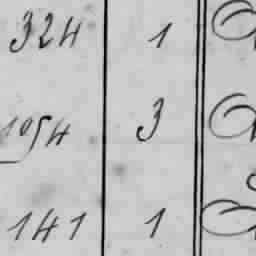 324 1
1054 3
141 1